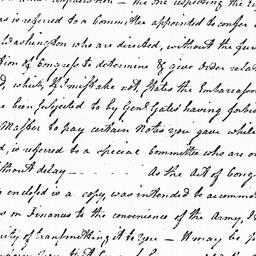 respecting the
is referred to a Committee appointed to confer
Washington who are directed, without the fur
tion of Congress to determine & give order rela
d, which, if I mistake not, States the Embarrass
been subjected to by Genl. Gates having forbid
Master to pay certain Notes you gave while
d, is referred to a special Committee who are or
thout delay — As the Act of Cong
is enclosed is a copy, was intended to accommod
s in Finances to the convenience of the Army, I
nity of transmitting it to you — It may be